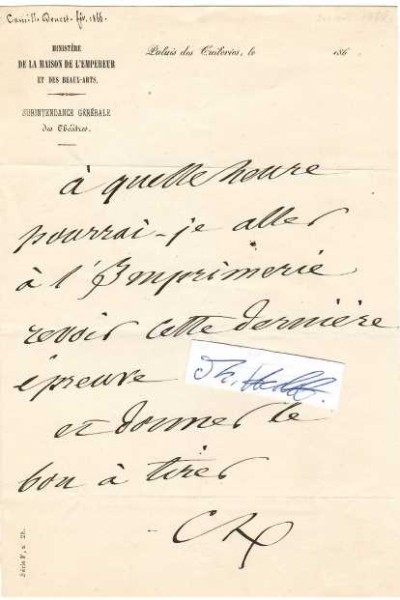 Camille Doucet - fév. 1866.
MINISTÈRE
DE LA MAISON DE L'EMPEREUR
ET DES BEAUX-ARTS.
SURINTENDANCE GÉNÉRALE
des Théâtres.
Palais des Tuileries, le 186
à quelle heure
pourrai-je aller
à l'Imprimerie
revoir cette dernière
épreuve
et donner le
bon à tirer
Série F, n° 28.